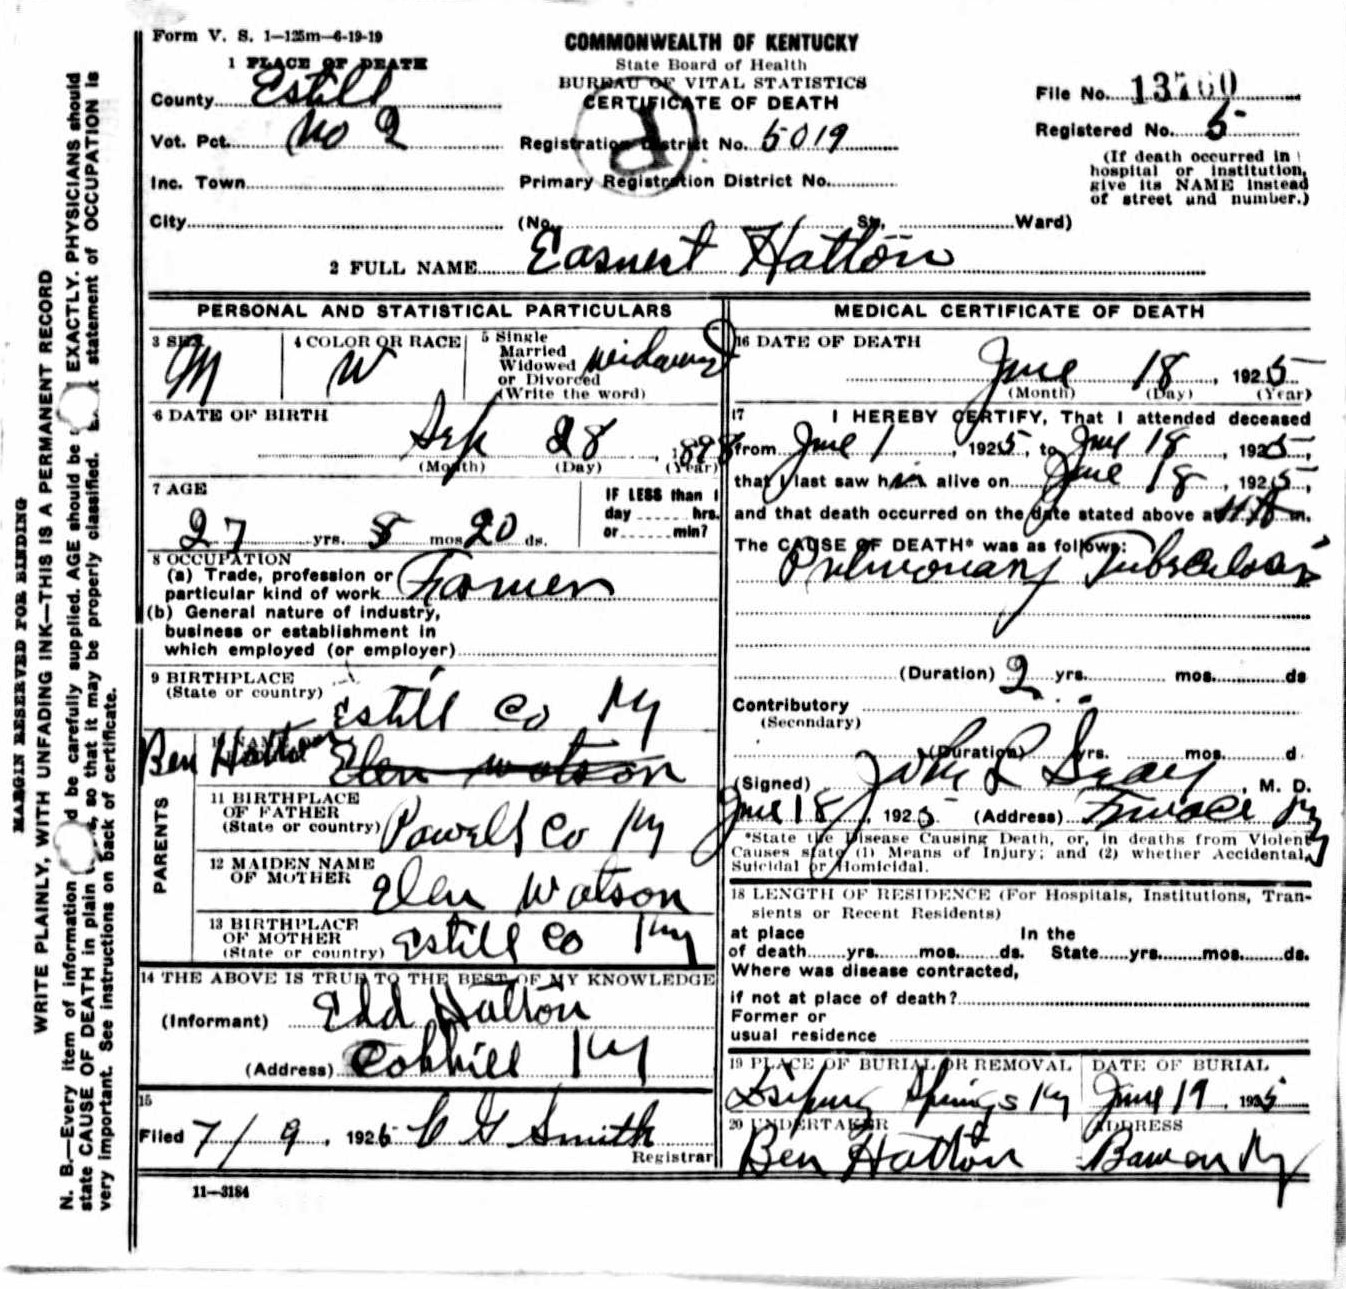 Form V. S. 1—125m—6-19-19
COMMONWEALTH OF KENTUCKY
State Board of Health
BUREAU OF VITAL STATISTICS
CERTIFICATE OF DEATH
1 PLACE OF DEATH
County Estill
Vot. Pct. No 2
Inc. Town
City
Registration District No. 5019
Primary Registration District No.
(No. St., Ward)
File No. 13760
Registered No. 5
(If death occurred in
hospital or institution,
give its NAME instead
of street and number.)
2 FULL NAME Easnest Hatton
PERSONAL AND STATISTICAL PARTICULARS
3 SEX M
4 COLOR OR RACE W
5 Single
Married
Widowed
or Divorced
(Write the word)
6 DATE OF BIRTH
Sep 28, 1898
(Month) (Day) (Year)
7 AGE
27 yrs. 8 mos. 20 ds.
IF LESS than 1
day hrs.
or min?
8 OCCUPATION
(a) Trade, profession or
particular kind of work Farmer
(b) General nature of industry,
business or establishment in
which employed (or employer)
9 BIRTHPLACE
(State or country) Estill Co Ky
PARENTS
Ben Hatton Elen Watson
11 BIRTHPLACE
OF FATHER
(State or country) Powell Co Ky
12 MAIDEN NAME
OF MOTHER Elen Watson
13 BIRTHPLACE
OF MOTHER
(State or country) Estill Co Ky
14 THE ABOVE IS TRUE TO THE BEST OF MY KNOWLEDGE
(Informant) Edd Hatton
(Address) Cobhill Ky
15
Filed 7/9, 1925 C G Smith
Registrar
11—3184
MEDICAL CERTIFICATE OF DEATH
16 DATE OF DEATH
June 18, 1925
(Month) (Day) (Year)
17 I HEREBY CERTIFY, That I attended deceased
from June 1, 1925, to June 18, 1925,
that I last saw him alive on June 18, 1925,
and that death occurred on the date stated above at m.
The CAUSE OF DEATH* was as follows:
Pulmonary Tuberculosis
(Duration) 2 yrs. mos. ds
Contributory
(Secondary)
(Duration) yrs. mos. d
(Signed) John , M. D.
June 18, 1925 (Address) Furnace Ky
*State the Disease Causing Death, or, in deaths from Violent
Causes state (1) Means of Injury; and (2) whether Accidental,
Suicidal or Homicidal.
18 LENGTH OF RESIDENCE (For Hospitals, Institutions, Tran-
sients or Recent Residents)
at place In the
of death yrs. mos. ds. State yrs. mos. ds.
Where was disease contracted,
if not at place of death?
Former or
usual residence
19 PLACE OF BURIAL OR REMOVAL
Springs Ky
DATE OF BURIAL
June 19, 1925
20 UNDERTAKER
Ben Hatton
ADDRESS
Ky
MARGIN RESERVED FOR BINDING
WRITE PLAINLY, WITH UNFADING INK—THIS IS A PERMANENT RECORD
N. B.—Every item of information be carefully supplied. AGE should be EXACTLY. PHYSICIANS should
state CAUSE OF DEATH in plain so that it may be properly classified. statement of OCCUPATION is
very important. See instructions on back of certificate.